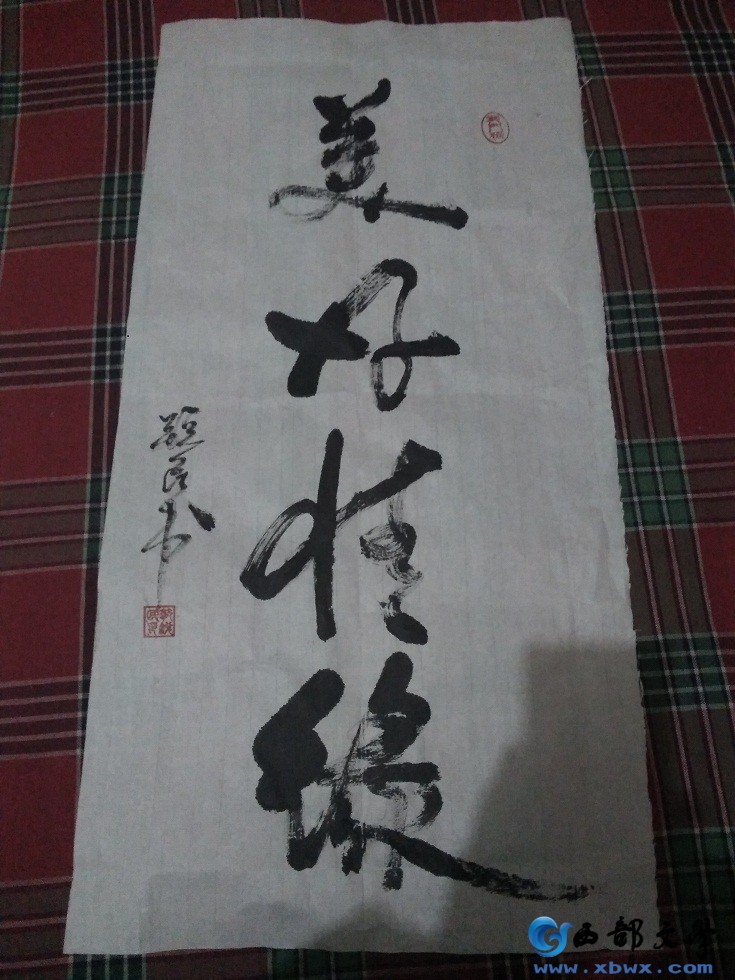 美好情缘
民书
西部文学
www.xbwx.com